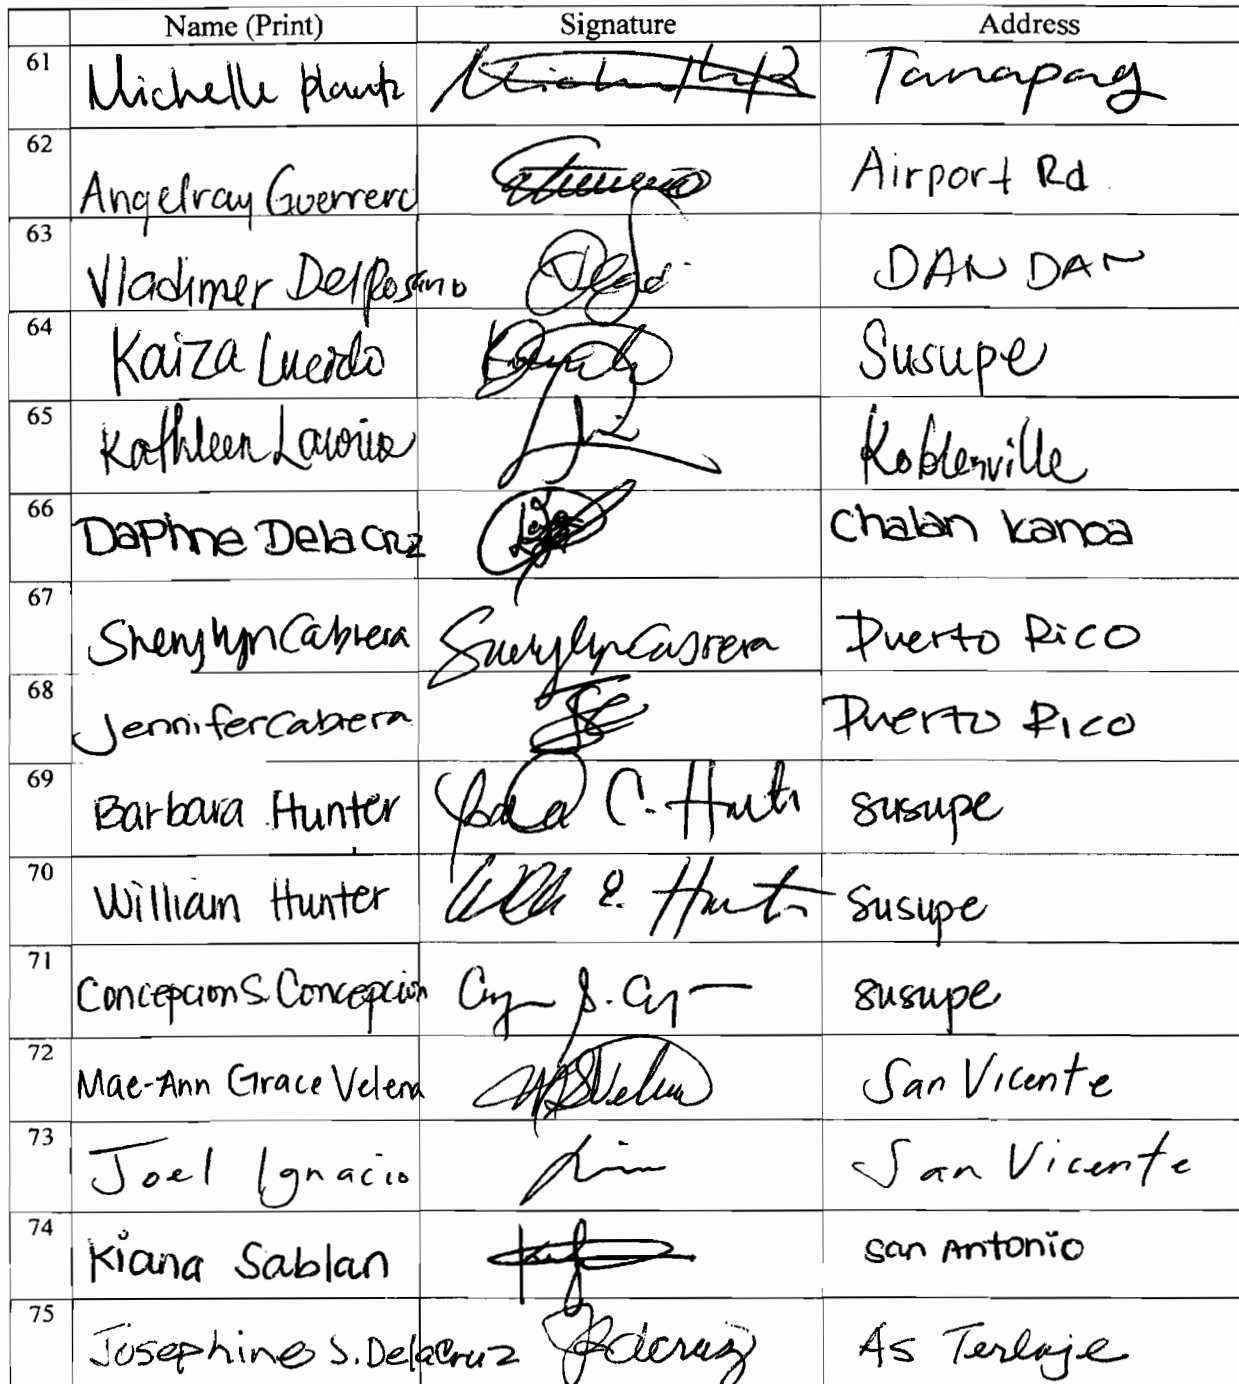 Name (Print) Signature Address
61 Michelle Plantz Tanapag
62 Angelray Guerrero Airport Rd
63 Vladimer DelRosario DAN DAN
64 Kaiza Lucido Susupe
65 Kathleen Koblerville
66 Daphne Dela Cruz Chalan kanoa
67 Sherylyn Cabrera Sherylyn Cabrera Puerto Rico
68 Jennifer Cabrera Puerto Rico
69 Barbara Hunter C. Hunter susupe
70 William Hunter E. Hunter susupe
71 Concepcion S. Concepcion susupe
72 Mae-Ann Grace Velena San Vicente
73 Joel Ignacio San Vicente
74 Kiana Sablan san Antonio
75 Josephine S. Dela Cruz As Terlaje